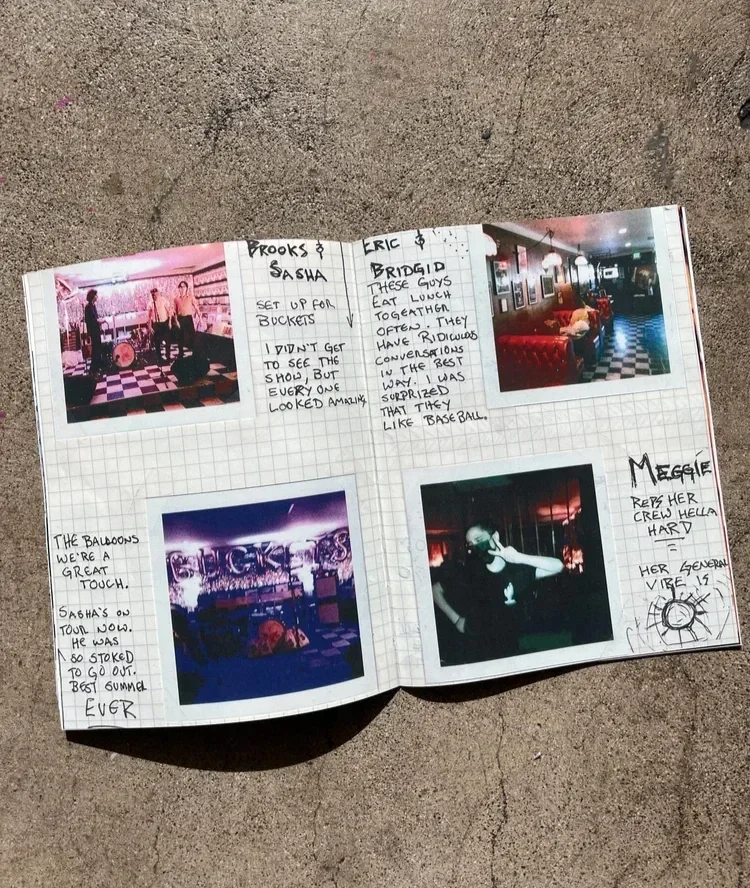 BROOKS &
SASHA
SET UP FOR
BUCKETS
I DIDN'T GET
TO SEE THE
SHOW, BUT
EVERY ONE
LOOKED AMAZING.
THE BALLOONS
WE'RE A
GREAT
TOUCH.
SASHA'S ON
TOUR NOW.
HE WAS
SO STOKED
TO GO OUT.
BEST SUMMER
EVER
BUCKETS
ERIC &
BRIDGID
THESE GUYS
EAT LUNCH
TOGEATHER
OFTEN. THEY
HAVE RIDICULOUS
CONVERSATIONS
IN THE BEST
WAY. I WAS
SURPRIZED
THAT THEY
LIKE BASEBALL.
MEGGIE
REPS HER
CREW HELLA
HARD
HER GENERAL
VIBE IS